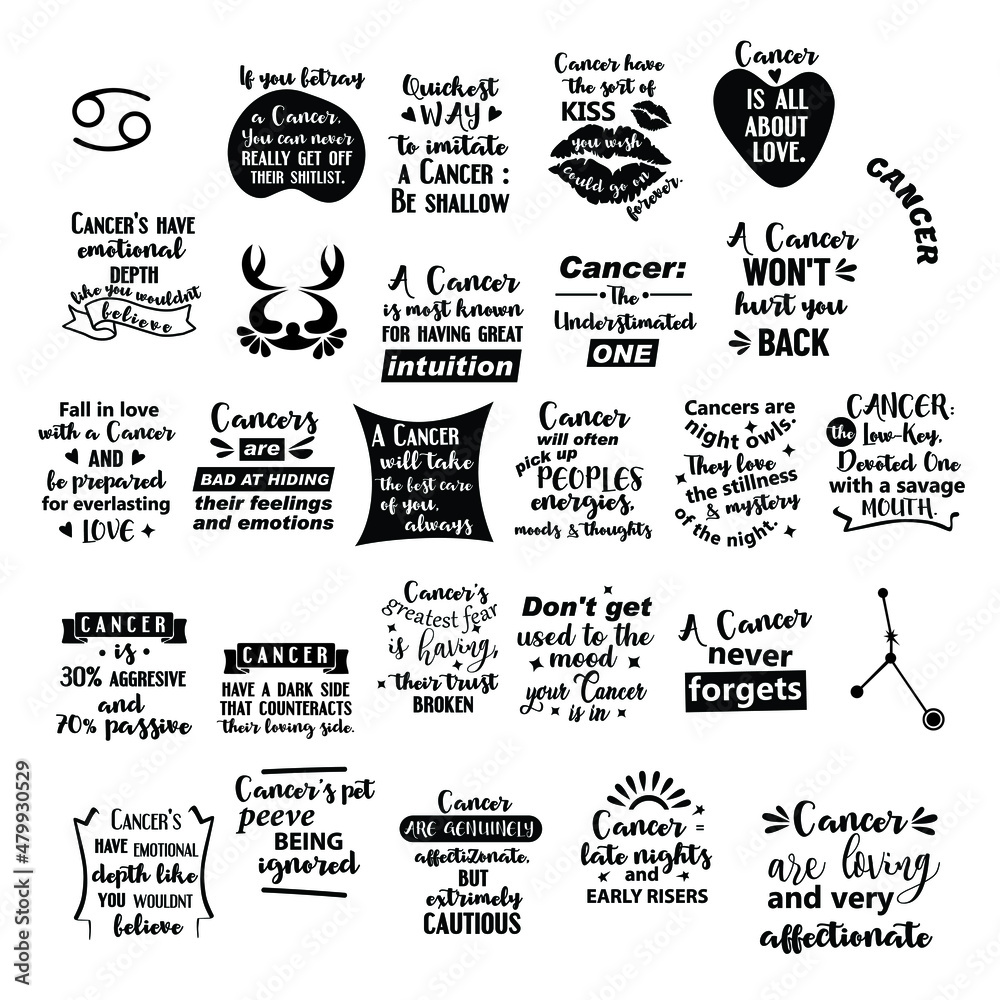 If you betray
a Cancer,
You can never
REALLY GET OFF
THEIR SHITLIST.
Quickest
WAY
to imitate
a Cancer :
Be shallow
Cancer have
the sort of
KISS
you wish
could go on
forever.
Cancer
IS ALL
ABOUT
LOVE.
CANCER
Cancer's have
emotional
depth
like you wouldnt
believe
A Cancer
is most known
FOR HAVING GREAT
intuition
Cancer:
The
Understimated
ONE
A Cancer
WON'T
hurt you
BACK
Fall in love
with a Cancer
AND
be prepared
for everlasting
LOVE
Cancers
are
BAD AT HIDING
their feelings
and emotions
A Cancer
will take
the best care
of you,
always
Cancer
will often
pick up
PEOPLES
energies,
moods & thoughts
Cancers are
night owls.
They love
the stillness
& mystery
of the night.
CANCER:
the Low-Key,
Devoted One
with a savage
MOUTH.
CANCER
is
30% AGGRESIVE
and
70% passive
CANCER
HAVE A DARK SIDE
THAT COUNTERACTS
their loving side.
Cancer's
greatest fear
is having,
their trust
BROKEN
Don't get
used to the
mood
your Cancer
is in
A Cancer
never
forgets
Cancer's
HAVE EMOTIONAL
depth like
YOU WOULDNT
believe
Cancer's pet
peeve
BEING
ignored
Cancer
ARE GENUINELY
affectiZonate,
BUT
extrimely
CAUTIOUS
Cancer =
late nights
and
EARLY RISERS
Cancer
are loving
and very
affectionate
Adobe Stock | #479930529